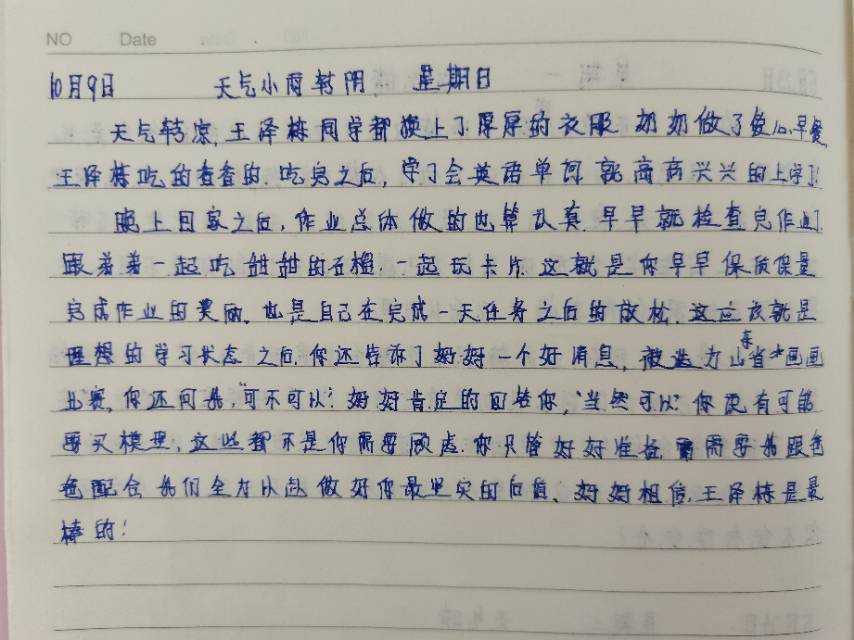 NO Date
10月9日 天气小雨转阴 星期日
天气转凉,王泽栋同学都换上了厚厚的衣服 奶奶做了可口早餐,
王泽栋吃的香香的.吃完之后,学习会英语单词 就高高兴兴的上学了!
晚上回家之后,作业总体做的也算认真.早早就检查完作业了.
跟着一起吃甜甜的石榴.一起玩卡片.这就是你早早保质保量
完成作业的奖励.也是自己在完成一天任务之后的放松.这应该就是
理想的学习状态.之后.你还告诉了妈妈一个好消息,被选为山东省画画
比赛,你还问我,"可不可以?妈妈肯定的回答你,"当然可以?你没有可能
要买模型,这些都不是你需要顾虑.你只管好好准备,需要我跟爸
爸配合我们全力以赴做好你最坚实的后盾、妈妈相信,王泽栋是最
棒的!